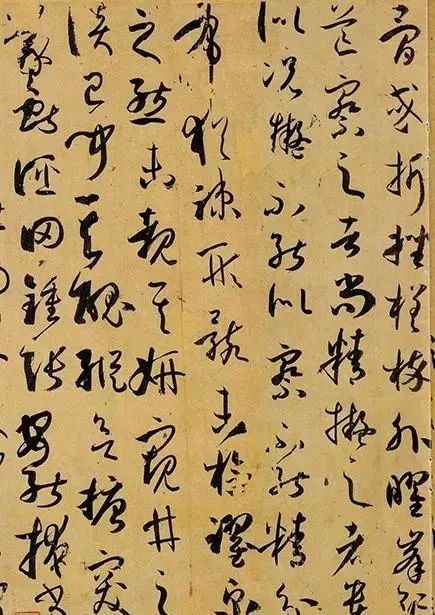 骨或折挫槎枿外曜鋒
芒察之者尚精擬之者貴
似況擬不能似察不能精分
布猶疎形骸未檢躍泉
之態未覩其妍窺井之
談已聞其醜縱欲搪突
羲獻誣罔鍾張安能掩